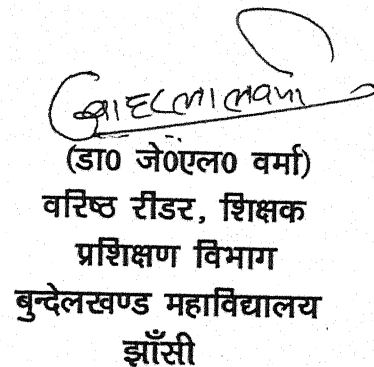 (डा0 जे0एल0 वर्मा)
वरिष्ठ रीडर, शिक्षक
प्रशिक्षण विभाग
बुन्देलखण्ड महाविद्यालय
झाँसी